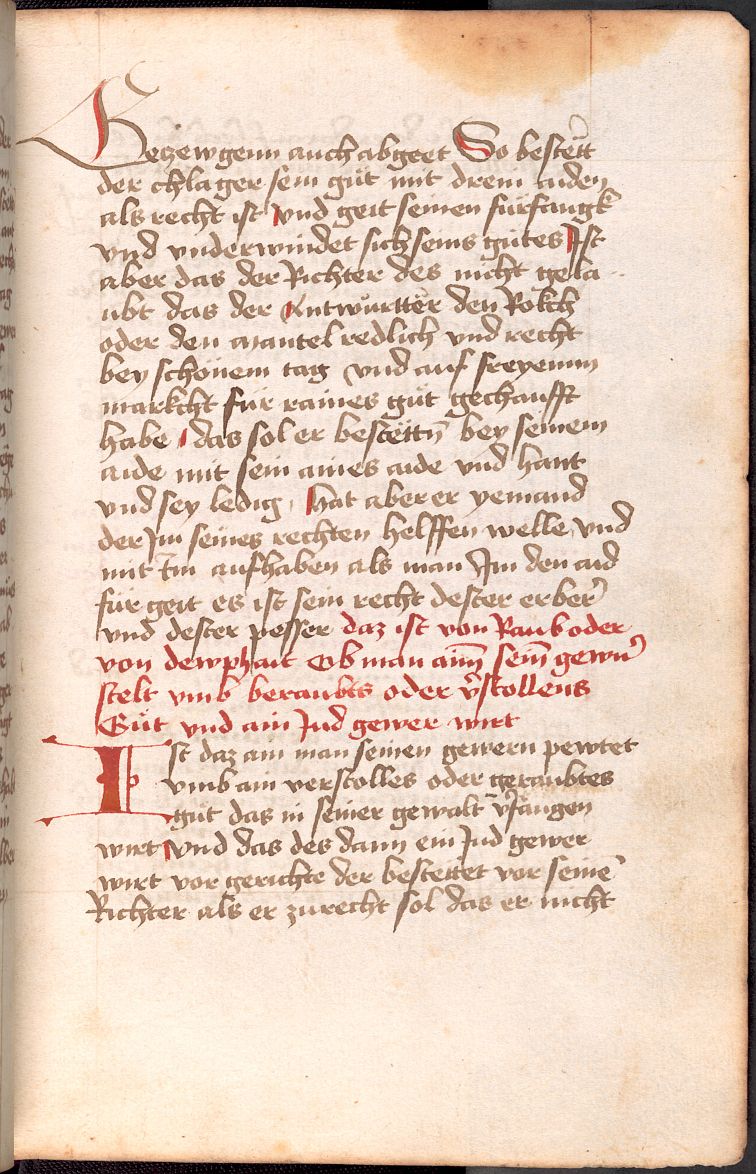 Geczewgenn auch abgeet So bestett
der chlager sein gůt mit drein aiden
als recht ist vnd geit seinen fürfangk
vnd vnderwindet sich seins gůtes Ist
aber das der Richter des nicht gela
ubt das der Antwurtter den Rokch
oder den Mantel redlich vnd recht
bey schönem tag vnd auf freyenmm
markcht für raines gůt gechaufft
habe das sol er bestettn̄ bey seinem
aide mit sein aines aide vnd hant
vnd sey ledig hat aber er yemand
der Im seines rechten helffen welle vnd
mit Im aufhaben als man Im den aid
für geit es ist sein recht dester erber
vnd dester pesser daz ist von Raub oder
von dewphait Ob man aim̄ sein̄ gewer
stelt vmb beraubts oder v̄stollens
Gůt vnd ain Jud gewer wirt
Ist daz ain man seinen gewern pewtet
vmb ain verstolles oder geraubtes
gůt das in seiner gewalt v̄fangen
wirt vnd das des dann ein Jud gewer
wirt vor gerichte der bestettet vor seinē
Richter als er zurecht sol das er nicht